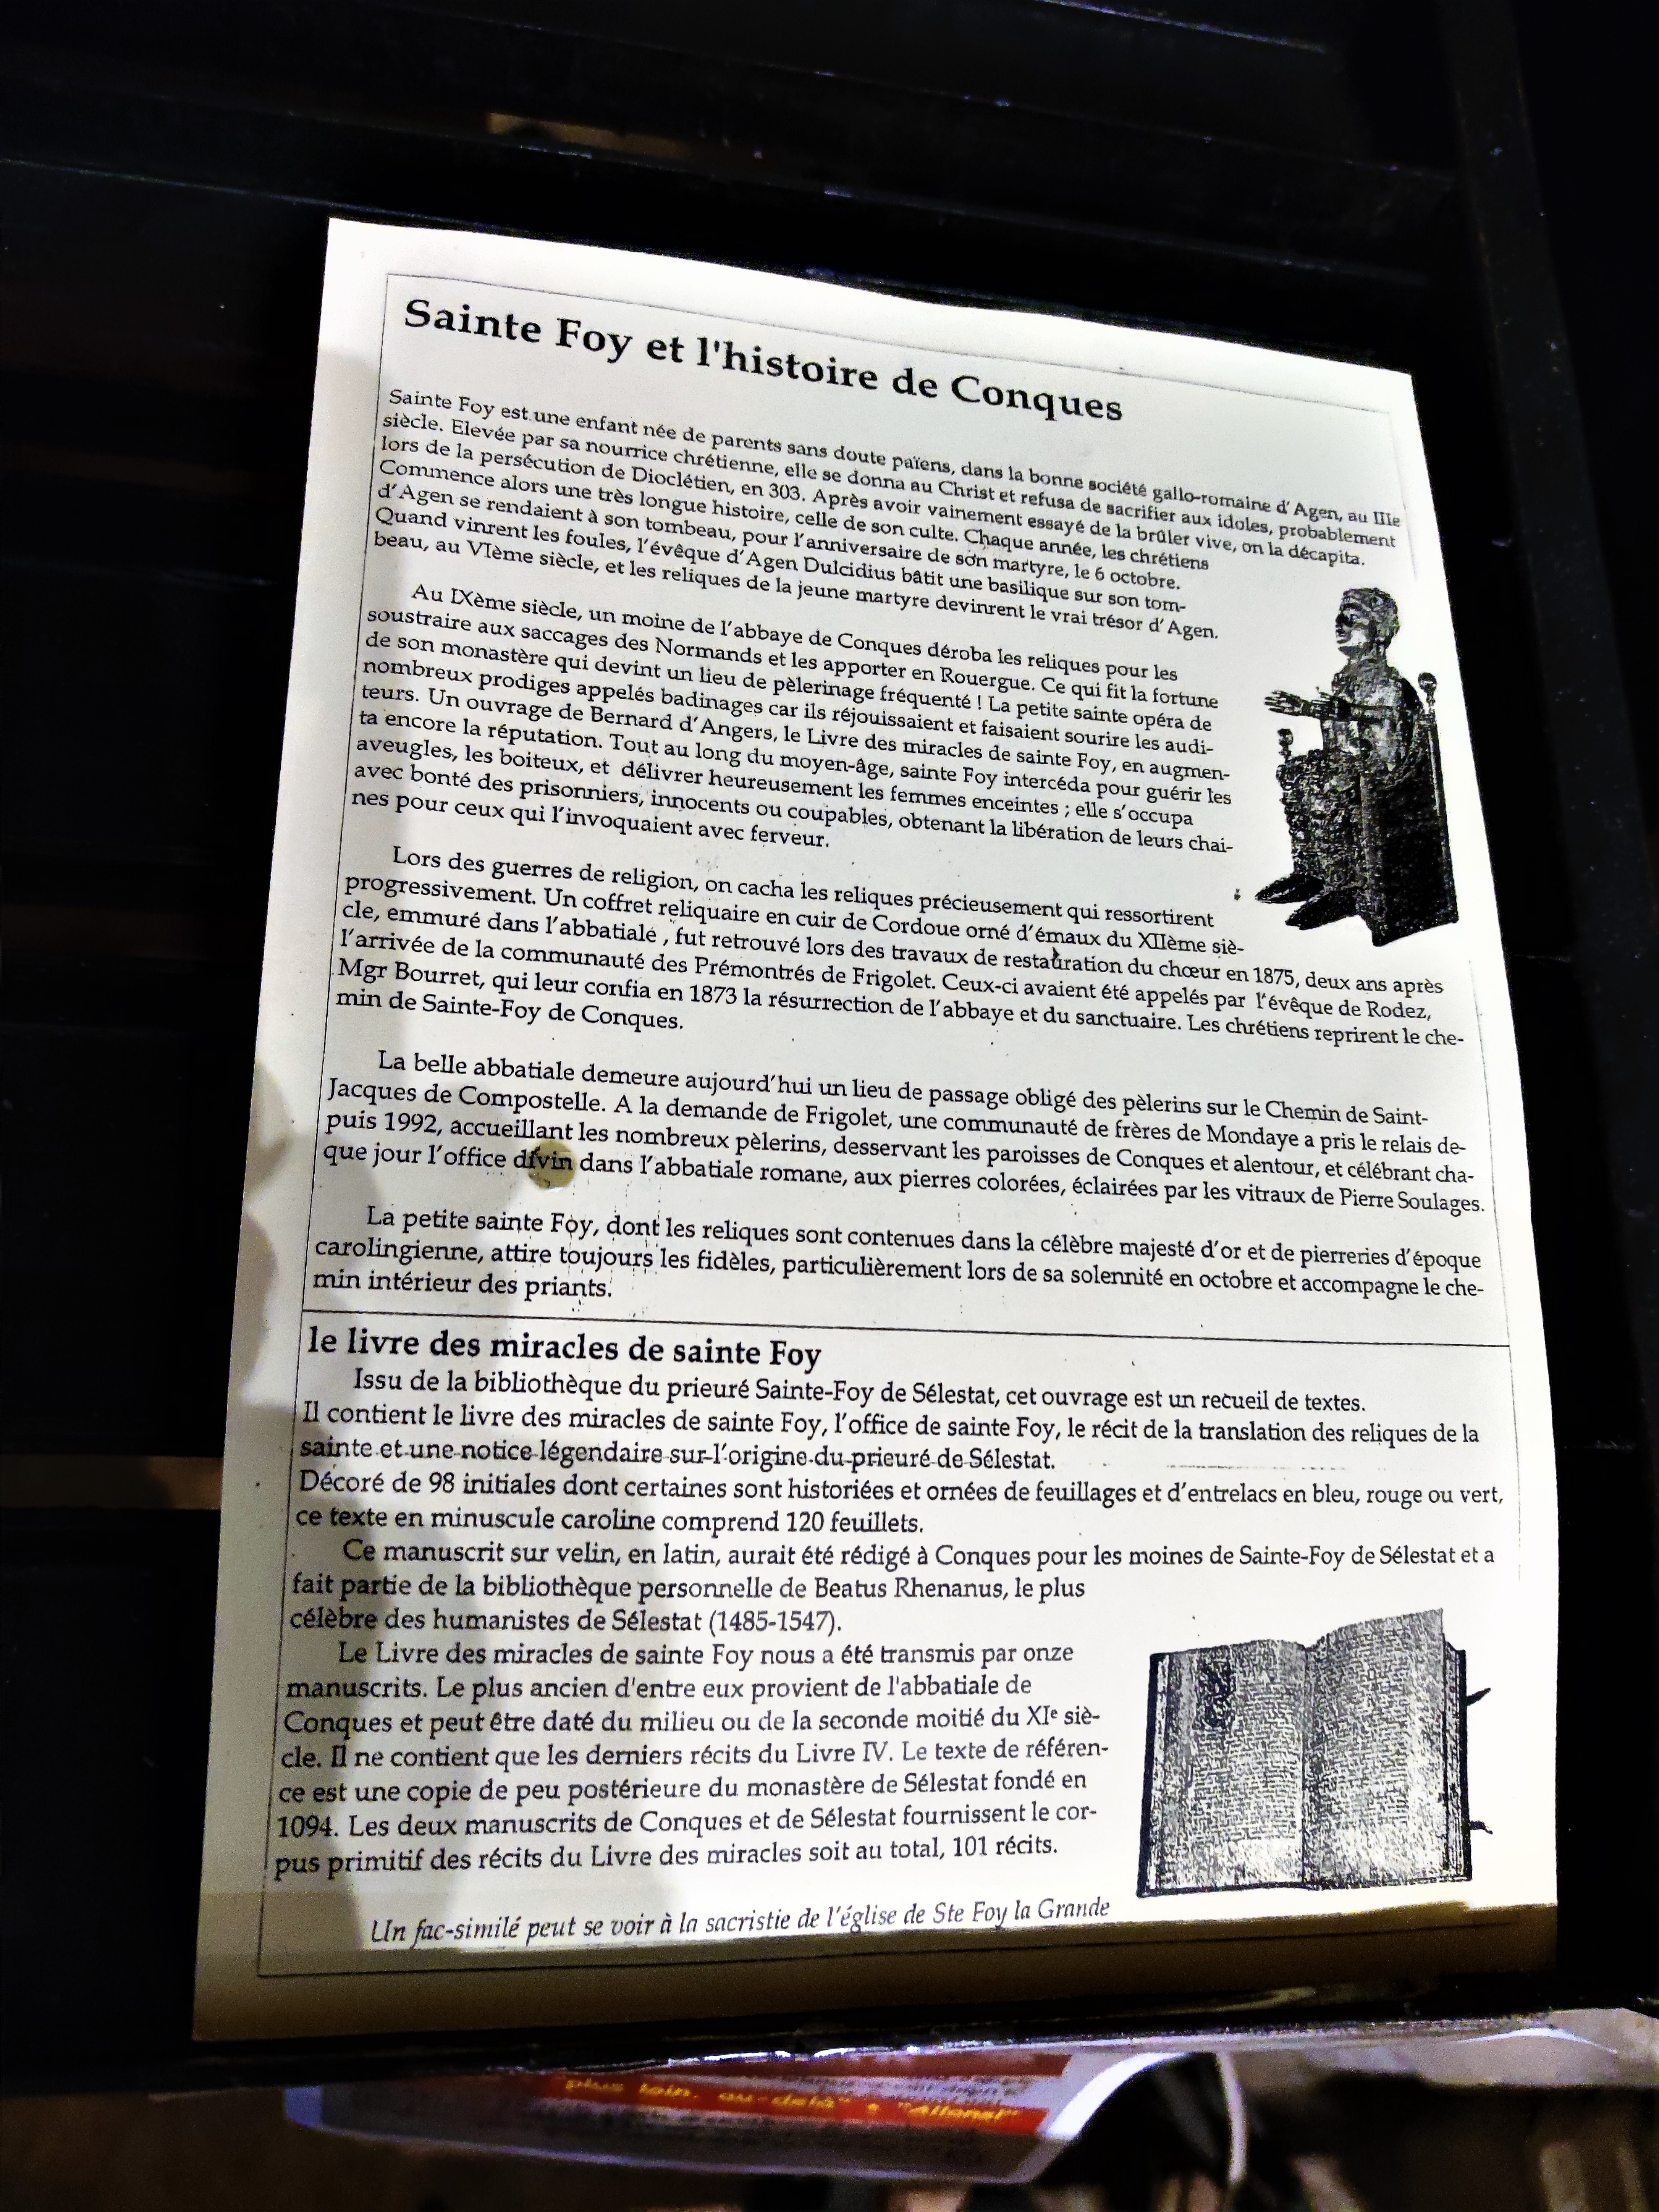 Sainte Foy et l'histoire de Conques
Sainte Foy est une enfant née de parents sans doute païens, dans la bonne société gallo-romaine d'Agen, au IIIe
siècle. Elevée par sa nourrice chrétienne, elle se donna au Christ et refusa de sacrifier aux idoles, probablement
lors de la persécution de Dioclétien, en 303. Après avoir vainement essayé de la brûler vive, on la décapita.
Commence alors une très longue histoire, celle de son culte. Chaque année, les chrétiens
d'Agen se rendaient à son tombeau, pour l'anniversaire de son martyre, le 6 octobre.
Quand vinrent les foules, l'évêque d'Agen Dulcidius bâtit une basilique sur son tom-
beau, au VIème siècle, et les reliques de la jeune martyre devinrent le vrai trésor d'Agen.
Au IXème siècle, un moine de l'abbaye de Conques déroba les reliques pour les
soustraire aux saccages des Normands et les apporter en Rouergue. Ce qui fit la fortune
de son monastère qui devint un lieu de pèlerinage fréquenté ! La petite sainte opéra de
nombreux prodiges appelés badinages car ils réjouissaient et faisaient sourire les audi-
teurs. Un ouvrage de Bernard d'Angers, le Livre des miracles de sainte Foy, en augmen-
ta encore la réputation. Tout au long du moyen-âge, sainte Foy intercéda pour guérir les
aveugles, les boiteux, et délivrer heureusement les femmes enceintes ; elle s'occupa
avec bonté des prisonniers, innocents ou coupables, obtenant la libération de leurs chai-
nes pour ceux qui l'invoquaient avec ferveur.
Lors des guerres de religion, on cacha les reliques précieusement qui ressortirent
progressivement. Un coffret reliquaire en cuir de Cordoue orné d'émaux du XIIème siè-
cle, emmuré dans l'abbatiale , fut retrouvé lors des travaux de restauration du chœur en 1875, deux ans après
l'arrivée de la communauté des Prémontrés de Frigolet. Ceux-ci avaient été appelés par l'évêque de Rodez,
Mgr Bourret, qui leur confia en 1873 la résurrection de l'abbaye et du sanctuaire. Les chrétiens reprirent le che-
min de Sainte-Foy de Conques.
La belle abbatiale demeure aujourd'hui un lieu de passage obligé des pèlerins sur le Chemin de Saint-
Jacques de Compostelle. A la demande de Frigolet, une communauté de frères de Mondaye a pris le relais de-
puis 1992, accueillant les nombreux pèlerins, desservant les paroisses de Conques et alentour, et célébrant cha-
que jour l'office divin dans l'abbatiale romane, aux pierres colorées, éclairées par les vitraux de Pierre Soulages.
La petite sainte Foy, dont les reliques sont contenues dans la célèbre majesté d'or et de pierreries d'époque
carolingienne, attire toujours les fidèles, particulièrement lors de sa solennité en octobre et accompagne le che-
min intérieur des priants.
le livre des miracles de sainte Foy
Issu de la bibliothèque du prieuré Sainte-Foy de Sélestat, cet ouvrage est un recueil de textes.
Il contient le livre des miracles de sainte Foy, l'office de sainte Foy, le récit de la translation des reliques de la
sainte et une notice légendaire sur l'origine du prieuré de Sélestat.
Décoré de 98 initiales dont certaines sont historiées et ornées de feuillages et d'entrelacs en bleu, rouge ou vert,
ce texte en minuscule caroline comprend 120 feuillets.
Ce manuscrit sur velin, en latin, aurait été rédigé à Conques pour les moines de Sainte-Foy de Sélestat et a
fait partie de la bibliothèque personnelle de Beatus Rhenanus, le plus
célèbre des humanistes de Sélestat (1485-1547).
Le Livre des miracles de sainte Foy nous a été transmis par onze
manuscrits. Le plus ancien d'entre eux provient de l'abbatiale de
Conques et peut être daté du milieu ou de la seconde moitié du XIe siè-
cle. Il ne contient que les derniers récits du Livre IV. Le texte de référen-
ce est une copie de peu postérieure du monastère de Sélestat fondé en
1094. Les deux manuscrits de Conques et de Sélestat fournissent le cor-
pus primitif des récits du Livre des miracles soit au total, 101 récits.
Un fac-similé peut se voir à la sacristie de l'église de Ste Foy la Grande
plus loin. au-delà" : "Allons!"